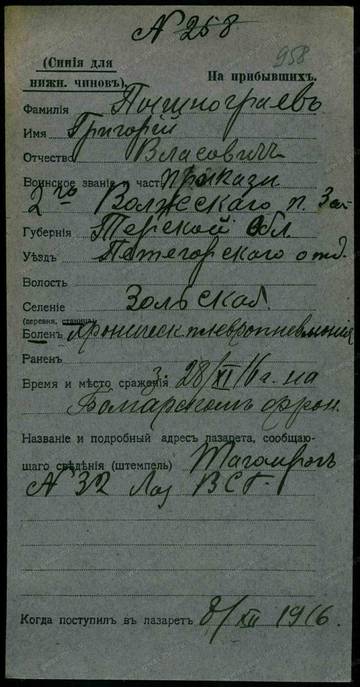 № 258
958
(Синія для
нижн. чиновъ)
На прибывшихъ.
Фамилія
Имя Григорій
Отчество Власовичъ
Воинское званіе и часть приказн
2го Волжскаго п. Заб
Губернія Терской Обл
Уѣздъ Пятегорскаго отд.
Волость
Селеніе Зольская
(деревня, станица)
Боленъ Хроническ плевропневмонія
Раненъ
Время и мѣсто сраженія 28/XI 16 г. на
фрон.
Названіе и подробный адресъ лазарета, сообщаю-
щаго свѣдѣнія (штемпель) Таганрогъ
№ 32 Лаз ВСГ.
Когда поступилъ въ лазаретъ 8/XII 1916.